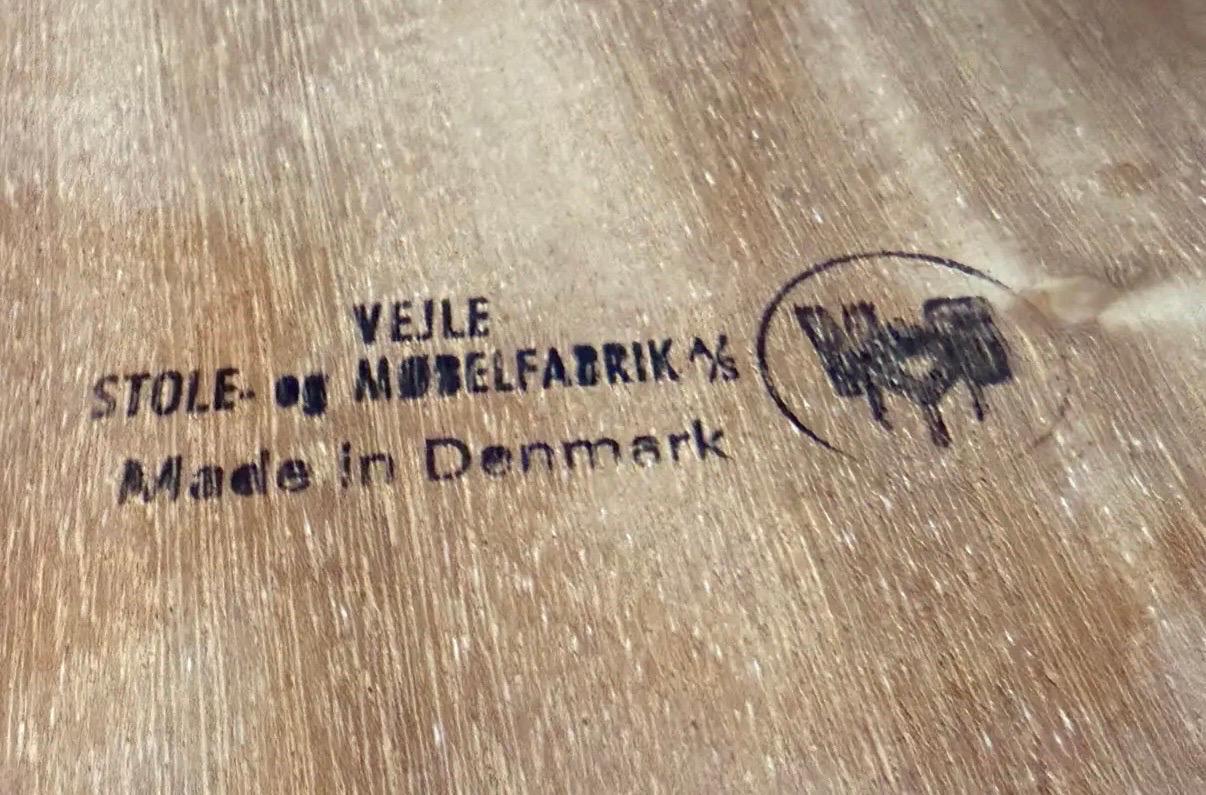 VEJLE
STOLE- og MØBELFABRIK A/S
Made in Denmark